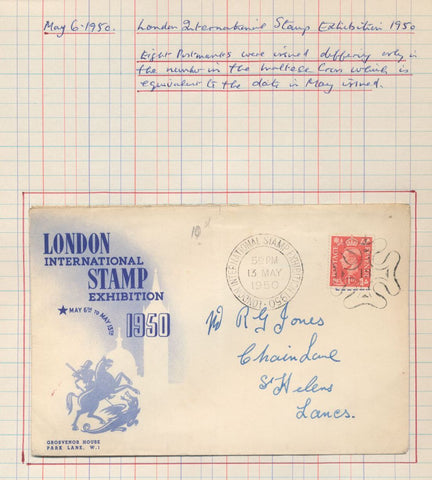 May 6-1950. London International Stamp Exhibition 1950
Eight Postmarks were issued differing only in
the number in the Maltese Cross which is
equivalent to the date in May issued.
LONDON
INTERNATIONAL
STAMP
EXHIBITION
★ MAY 6TH TO MAY 13TH
1950
GROSVENOR HOUSE
PARK LANE, W.1
INTERNATIONAL STAMP EXHIBITION
LONDON · 1950
PM
13 MAY
1950
POSTAGE REVENUE
R G Jones
Chain Lane
St Helens
Lancs.